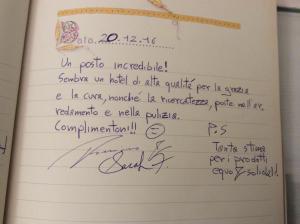 Data 20.12.16
Un posto incredibile!
Sembra un hotel di alta qualità per la grazia
e la cura, nonché la ricercatezza, poste nell'ar
redamento e nella pulizia.
Complimentoni!!
P.S
Tanta stima
per i prodotti
equo & solidali!
Sarah